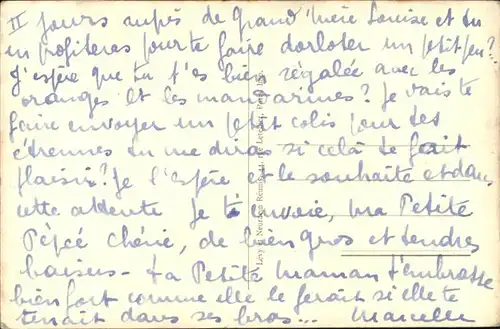 II jours auprès de Grand'Mère Louise et tu
en profiteras pour te faire dorloter un petit peu?
J'espère que tu t'es bien régalée avec les
oranges et les mandarines? Je vais te
faire envoyer un petit colis pour tes
étrennes tu me diras si celà te fait
plaisir? Je l'espère et le souhaite et dans
cette attente je t'envoie, ma Petite
chérie, de bien gros et tendres
baisers - ta Petite Maman t'embrasse
bien fort comme elle le ferait si elle te
tenait dans ses bras... Marcelle
Lévy et Neurdein Réunis, 44, rue Letellier, Paris